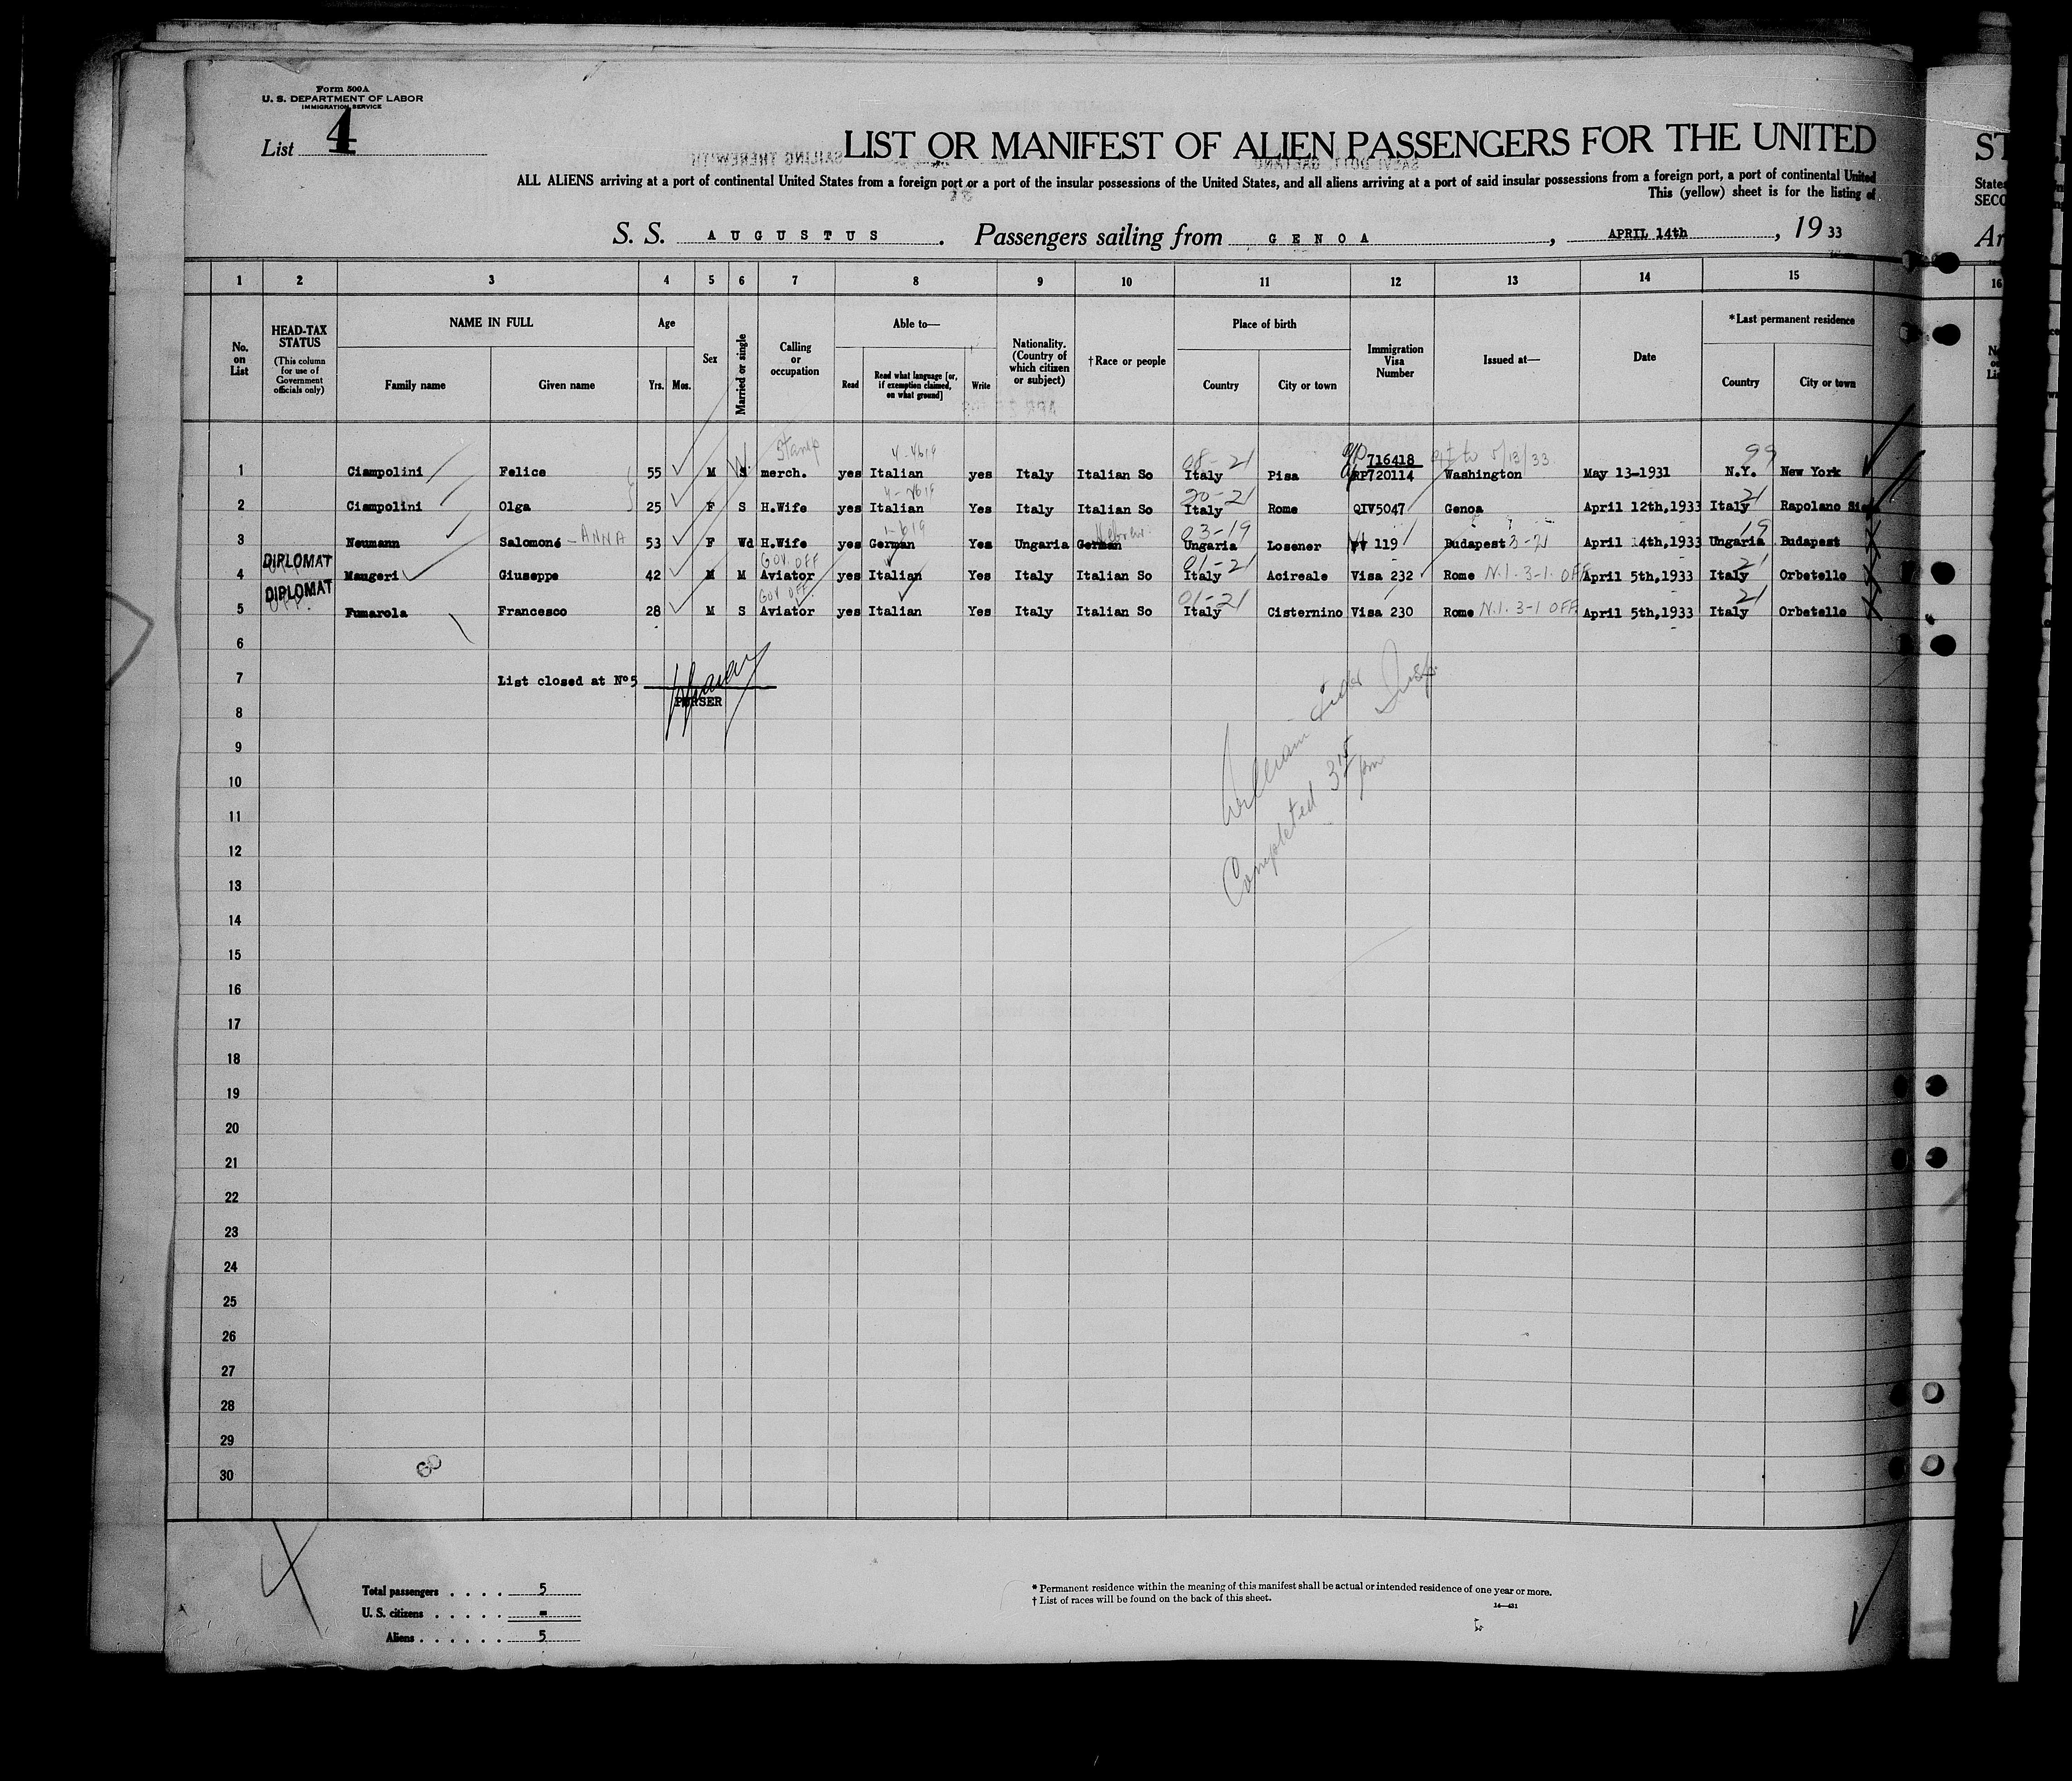 Form 500A
U. S. DEPARTMENT OF LABOR
IMMIGRATION SERVICE
List 4
LIST OR MANIFEST OF ALIEN PASSENGERS FOR THE UNITED
ST
ALL ALIENS arriving at a port of continental United States from a foreign port or a port of the insular possessions of the United States, and all aliens arriving at a port of said insular possessions from a foreign port, a port of continental United
States
This (yellow) sheet is for the listing of
SECO
S. S. AUGUSTUS. Passengers sailing from GENOA, APRIL 14th, 19 33
Ar
1 2 3 4 5 6 7 8 9 10 11 12 13 14 15 16
No. on List
HEAD-TAX STATUS (This column for use of Government officials only)
NAME IN FULL
Family name Given name
Age
Yrs. Mos.
Sex
Married or single
Calling or occupation
Able to—
Read Read what language [or, if exemption claimed, on what ground] Write
Nationality. (Country of which citizen or subject)
†Race or people
Place of birth
Country City or town
Immigration Visa Number
Issued at—
Date
*Last permanent residence
Country City or town
08-21 716418 to 5/13/33 99
1 Ciampolini Felice 55 M S merch. yes Italian yes Italy Italian So Italy Pisa RP720114 Washington May 13-1931 N.Y. New York
20-21 21
2 Ciampolini Olga 25 F S H.Wife yes Italian Yes Italy Italian So Italy Rome QIV5047 Genoa April 12th,1933 Italy Rapolano
Hebrew 03-19 19
3 Neumann Salomoné - ANNA 53 F Wd H.Wife yes German Yes Ungaria German Ungaria Losener 119 Budapest 3-21 April 14th,1933 Ungaria Budapest
DIPLOMAT GOV. OFF 01-21 21
4 Maugeri Giuseppe 42 M M Aviator yes Italian Yes Italy Italian So Italy Acireale Visa 232 Rome N.I. 3-1. OFF April 5th,1933 Italy Orbetello
DIPLOMAT OFF. GOV OFF 01-21 21
5 Fumarola Francesco 28 M S Aviator yes Italian Yes Italy Italian So Italy Cisternino Visa 230 Rome N.I. 3-1 OFF April 5th,1933 Italy Orbetello
6
7 List closed at Nº5
PURSER
William Insp.
Completed 3 15 pm
8
9
10
11
12
13
14
15
16
17
18
19
20
21
22
23
24
25
26
27
28
29
30
Total passengers . . . . 5
U. S. citizens . . . . . -
Aliens . . . . . . 5
* Permanent residence within the meaning of this manifest shall be actual or intended residence of one year or more.
† List of races will be found on the back of this sheet.
14—431